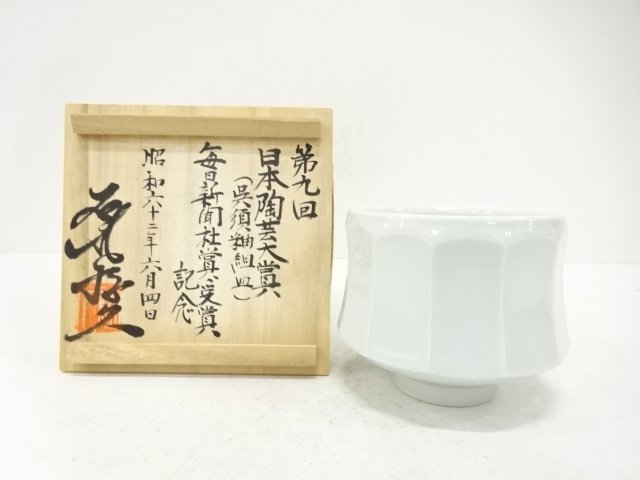 第九回
日本陶芸大賞
(呉須釉組皿)
毎日新聞社賞受賞
記念
昭和六十二年六月四日